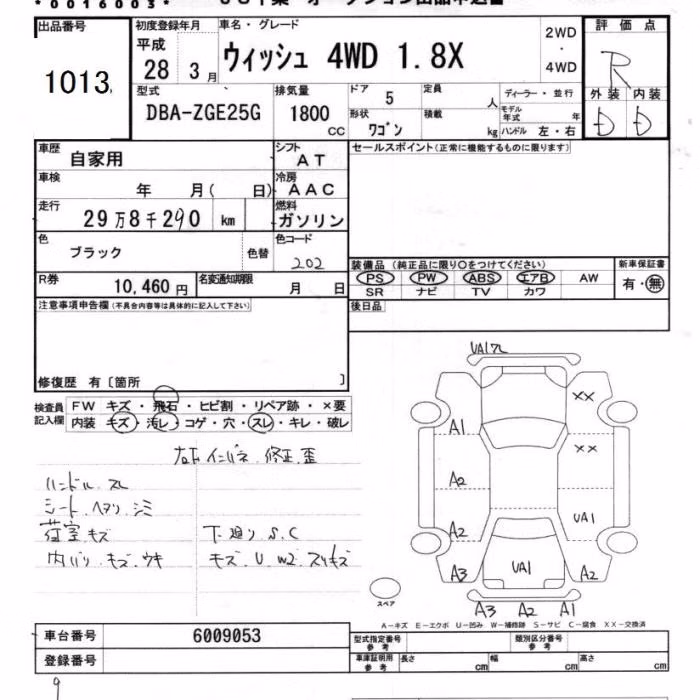 *0016003*
出品番号
1013
初度登録年月
平成
28 3月
車名・グレード
ウィッシュ 4WD 1.8X
2WD
・
4WD
評価点
R
外装 内装
D D
型式
DBA-ZGE25G
排気量
1800
CC
ドア 5
形状 ワゴン
定員 人
積載 kg
ディーラー・並行
モデル年式 年
ハンドル 左・右
車歴 自家用
シフト AT
車検 年 月( 日)
冷房 AAC
走行 29万8千290 km
燃料 ガソリン
色 ブラック 色替
色コード 202
R券 10,460円
名変通知期限 月 日
セールスポイント(正常に機能するものに限ります)
装備品 (純正品に限り〇をつけてください)
PS PW ABS エアB AW
SR ナビ TV カワ
新車保証書
有・無
後日品
注意事項申告欄(不具合内容等は具体的に記入して下さい)
修復歴 有〔箇所 〕
検査員記入欄
FW キズ・飛石・ヒビ割・リペア跡・×要
内装 キズ・汚レ・コゲ・穴・スレ・キレ・破レ
右下インパネ.修正.歪
ハンドル スレ
シート.ヘタリ.シミ
荷室キズ
内バリ.キズ.ウキ
下廻り S.C
キズ.U W2 スリキズ
UA17L
A1
A2
A2
A3
XX
XX
UA1
A2
UA1
A3 A2 A1
スペア
A－キズ E－エクボ U－凹み W－補修跡 S－サビ C－腐食 XX－交換済
車台番号 6009053
登録番号
型式指定番号 参考
類別区分番号 参考
車庫証明用 参考
長さ cm
幅 cm
高さ cm
9